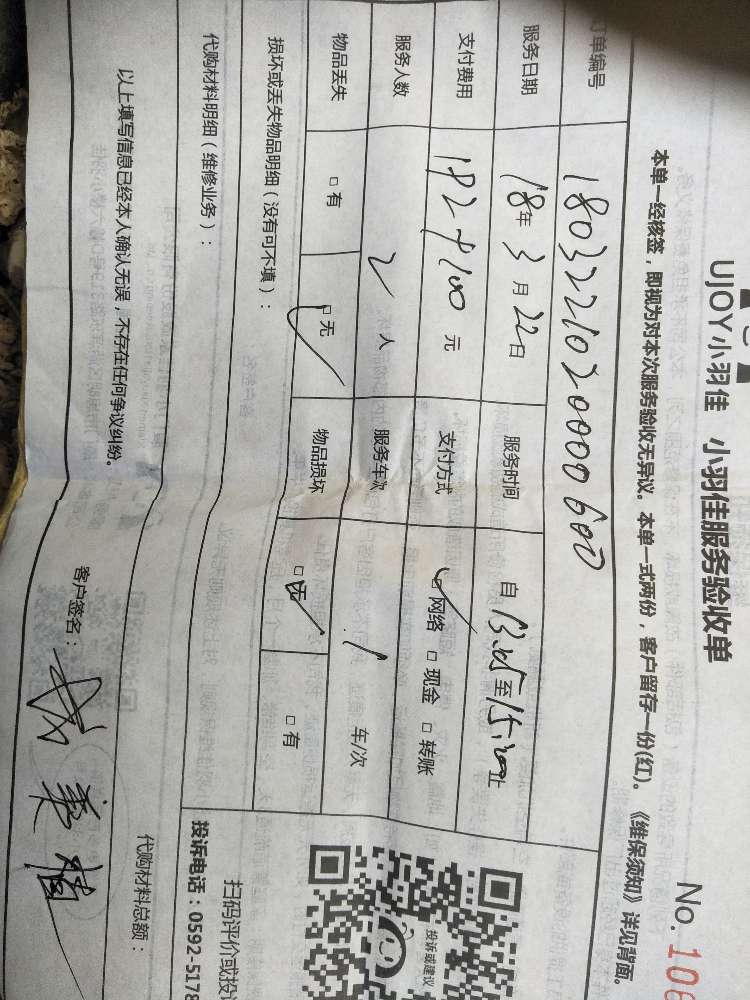 UJOY小羽佳 小羽佳服务验收单
No. 106
本单一经核签，即视为对本次服务验收无异议。本单一式两份，客户留存一份(红)。《维保须知》详见背面。
订单编号 1803221020000600
服务日期 18年3月22日 服务时间 自 至 止
支付费用 元 支付方式 ☑网络 □现金 □转账
服务人数 2 人 服务车次 1 车/次
物品丢失 □有 ☑无 物品损坏 ☑无 □有
损坏或丢失物品明细（没有可不填）：
代购材料明细（维修业务）：
代购材料总额：
以上填写信息已经本人确认无误，不存在任何争议纠纷。 客户签名：
投诉或建议
扫码评价或投
投诉电话：0592-5178